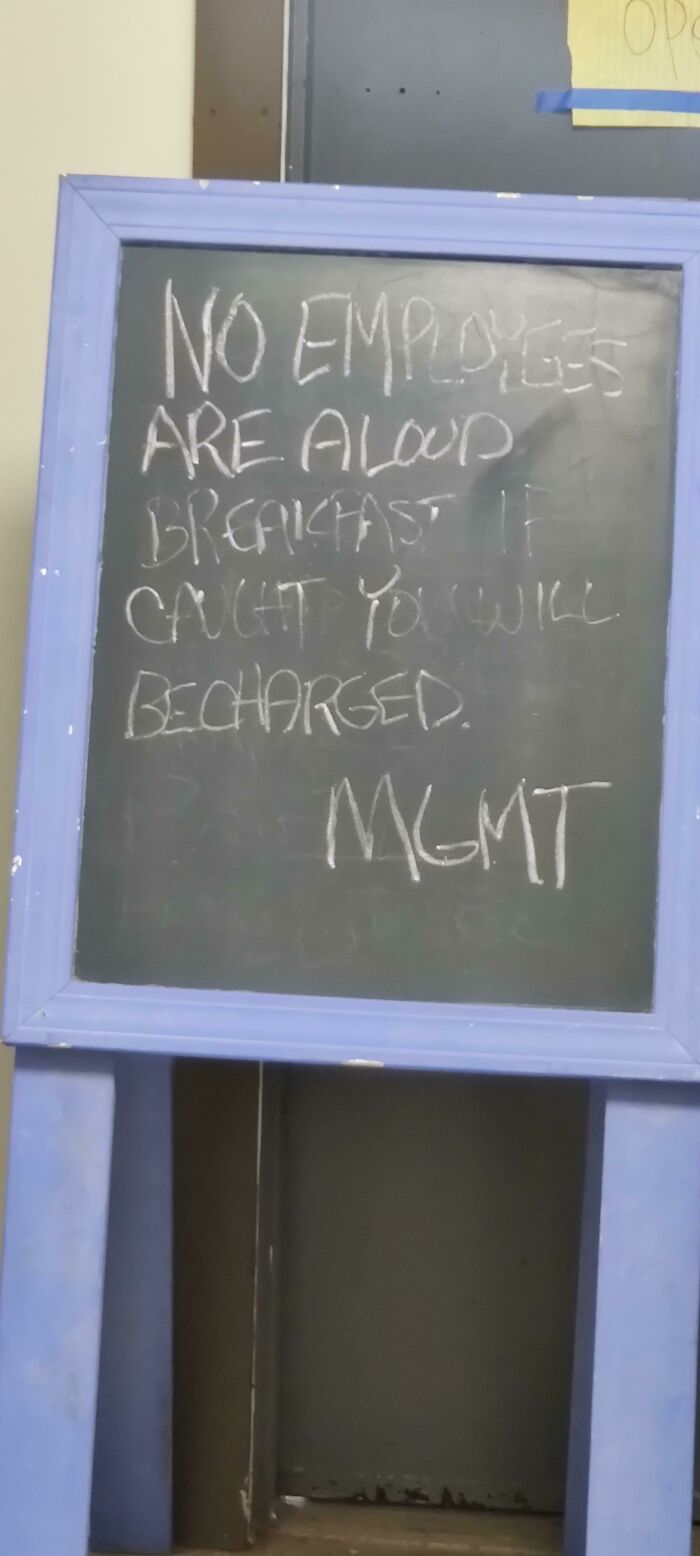 OPE
NO EMPLOYEES
ARE ALOUD
BREAKFAST IF
CAUGHT YOU WILL
BECHARGED.
MGMT